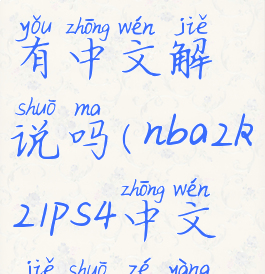 yǒu zhōng wén jiě
有中文解
shuō ma
说吗(nba2k
zhōng wén
21PS4中文
jiě shuō zé yàng